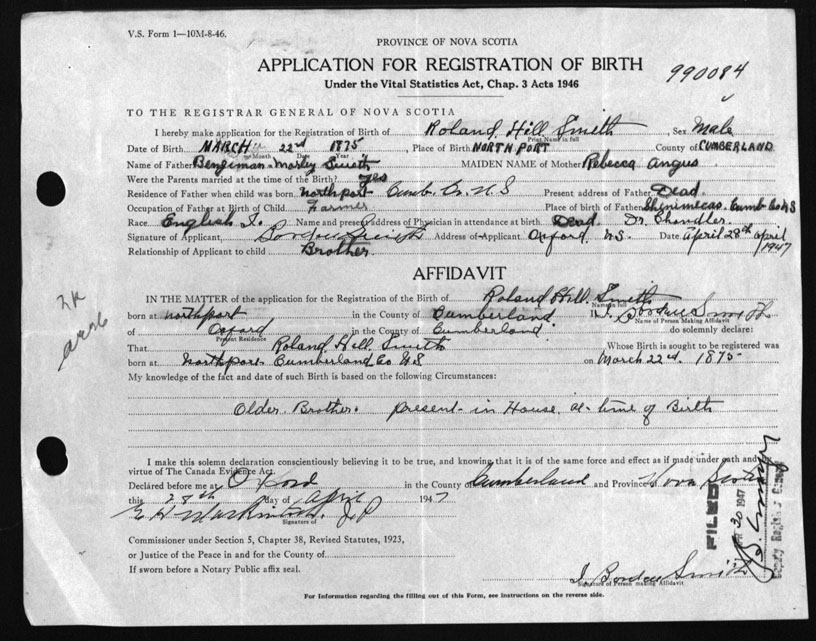 V.S. Form 1—10M-8-46.
PROVINCE OF NOVA SCOTIA
APPLICATION FOR REGISTRATION OF BIRTH
Under the Vital Statistics Act, Chap. 3 Acts 1946
990084
TO THE REGISTRAR GENERAL OF NOVA SCOTIA
I hereby make application for the Registration of Birth of Roland Hill Smith, Sex Male
Print Name in full
Date of Birth MARCH 22nd 1875, Place of Birth NORTH PORT County of CUMBERLAND
Month Day Year
Name of Father Benjeman Morley Smith MAIDEN NAME of Mother Rebecca Angus
Were the Parents married at the time of the Birth? yes
Residence of Father when child was born Northport Cumb. Co. N S Present address of Father Dead
Occupation of Father at Birth of Child Farmer Place of birth of Father Shinimecas Cumb Co N S
Race English Name and present address of Physician in attendance at birth Dead. Dr. Chandler
Signature of Applicant, Borden Smith Address of Applicant Oxford N.S. Date April 28th april 1947
Relationship of Applicant to child Brother
AFFIDAVIT
IN THE MATTER of the application for the Registration of the Birth of Roland Hill Smith
Name in full
born at northport in the County of Cumberland I, Borden Smith
Name of Person Making Affidavit
of Oxford in the County of Cumberland do solemnly declare:
Present Residence
That Roland Hill Smith Whose Birth is sought to be registered was
born at Northport Cumberland Co N S on March 22nd. 1875
My knowledge of the fact and date of such Birth is based on the following Circumstances:
Older Brother. present in House at time of Birth
I make this solemn declaration conscientiously believing it to be true, and knowing that it is of the same force and effect as if made under oath and
virtue of The Canada Evidence Act
Declared before me at Oxford in the County of Cumberland and Province of Nova Scotia
this 28th day of April 1947
J P
Signature of
Commissioner under Section 5, Chapter 38, Revised Statutes, 1923,
or Justice of the Peace in and for the County of
If sworn before a Notary Public affix seal.
FILED
30 1947
Deputy Registrar General
I. Borden Smith
Signature of Person making Affidavit
For Information regarding the filling out of this Form, see instructions on the reverse side.